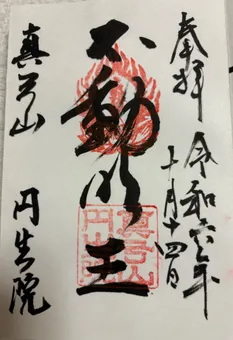 奉拝 令和六年
十月十四日
不動明王
真弓山
円生院
真弓山
円生院